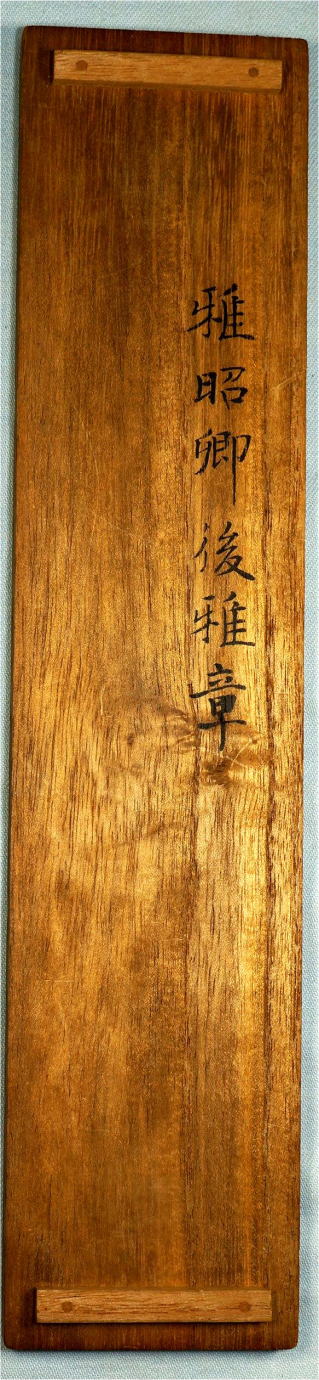 雅昭卿後雅章